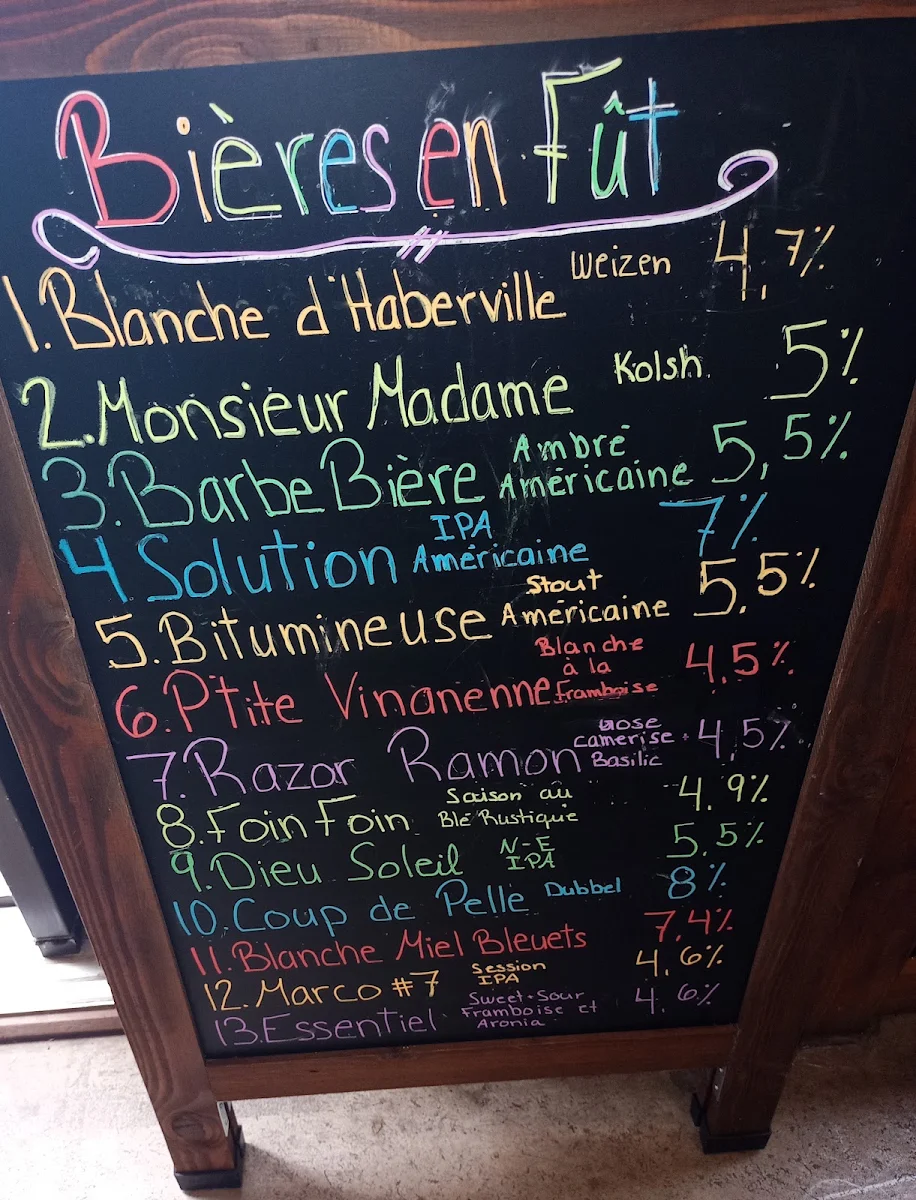 Bières en Fût
1. Blanche d'Haberville Weizen 4,7%
2. Monsieur Madame Kolsh. 5%
3. Barbe Bière Ambré Américaine 5,5%
4. Solution IPA Américaine 7%
5. Bitumineuse Stout Américaine 5,5%
6. Ptite Vinanenne Blanche à la Framboise 4,5%
7. Razor Ramon Gose camerise Basilic 4,5%
8. Foin Foin Saison au Blé Rustique 4,9%
9. Dieu Soleil N-E IPA 5,5%
10. Coup de Pelle Dubbel 8%
11. Blanche Miel Bleuets 7,4%
12. Marco #7 Session IPA 4,6%
13. Essentiel Sweet-Sour Framboise et Aronia 4,6%